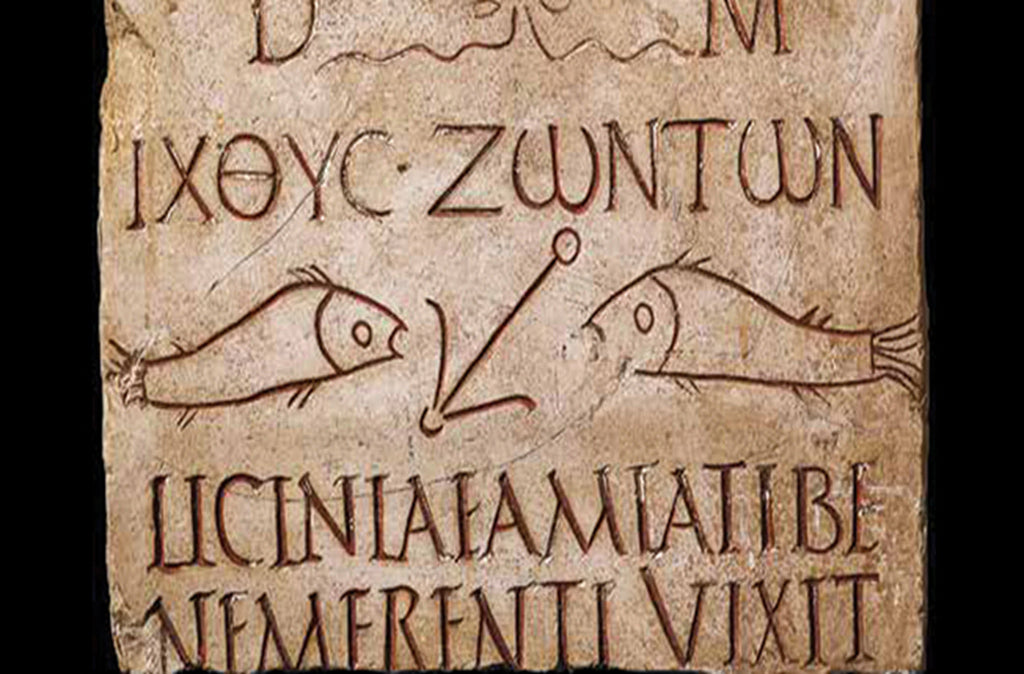 D M
ΙΧΘΥC · ΖωΝΤωΝ
LICINIAEAMIATIBE
NEMERENTI VIXIT